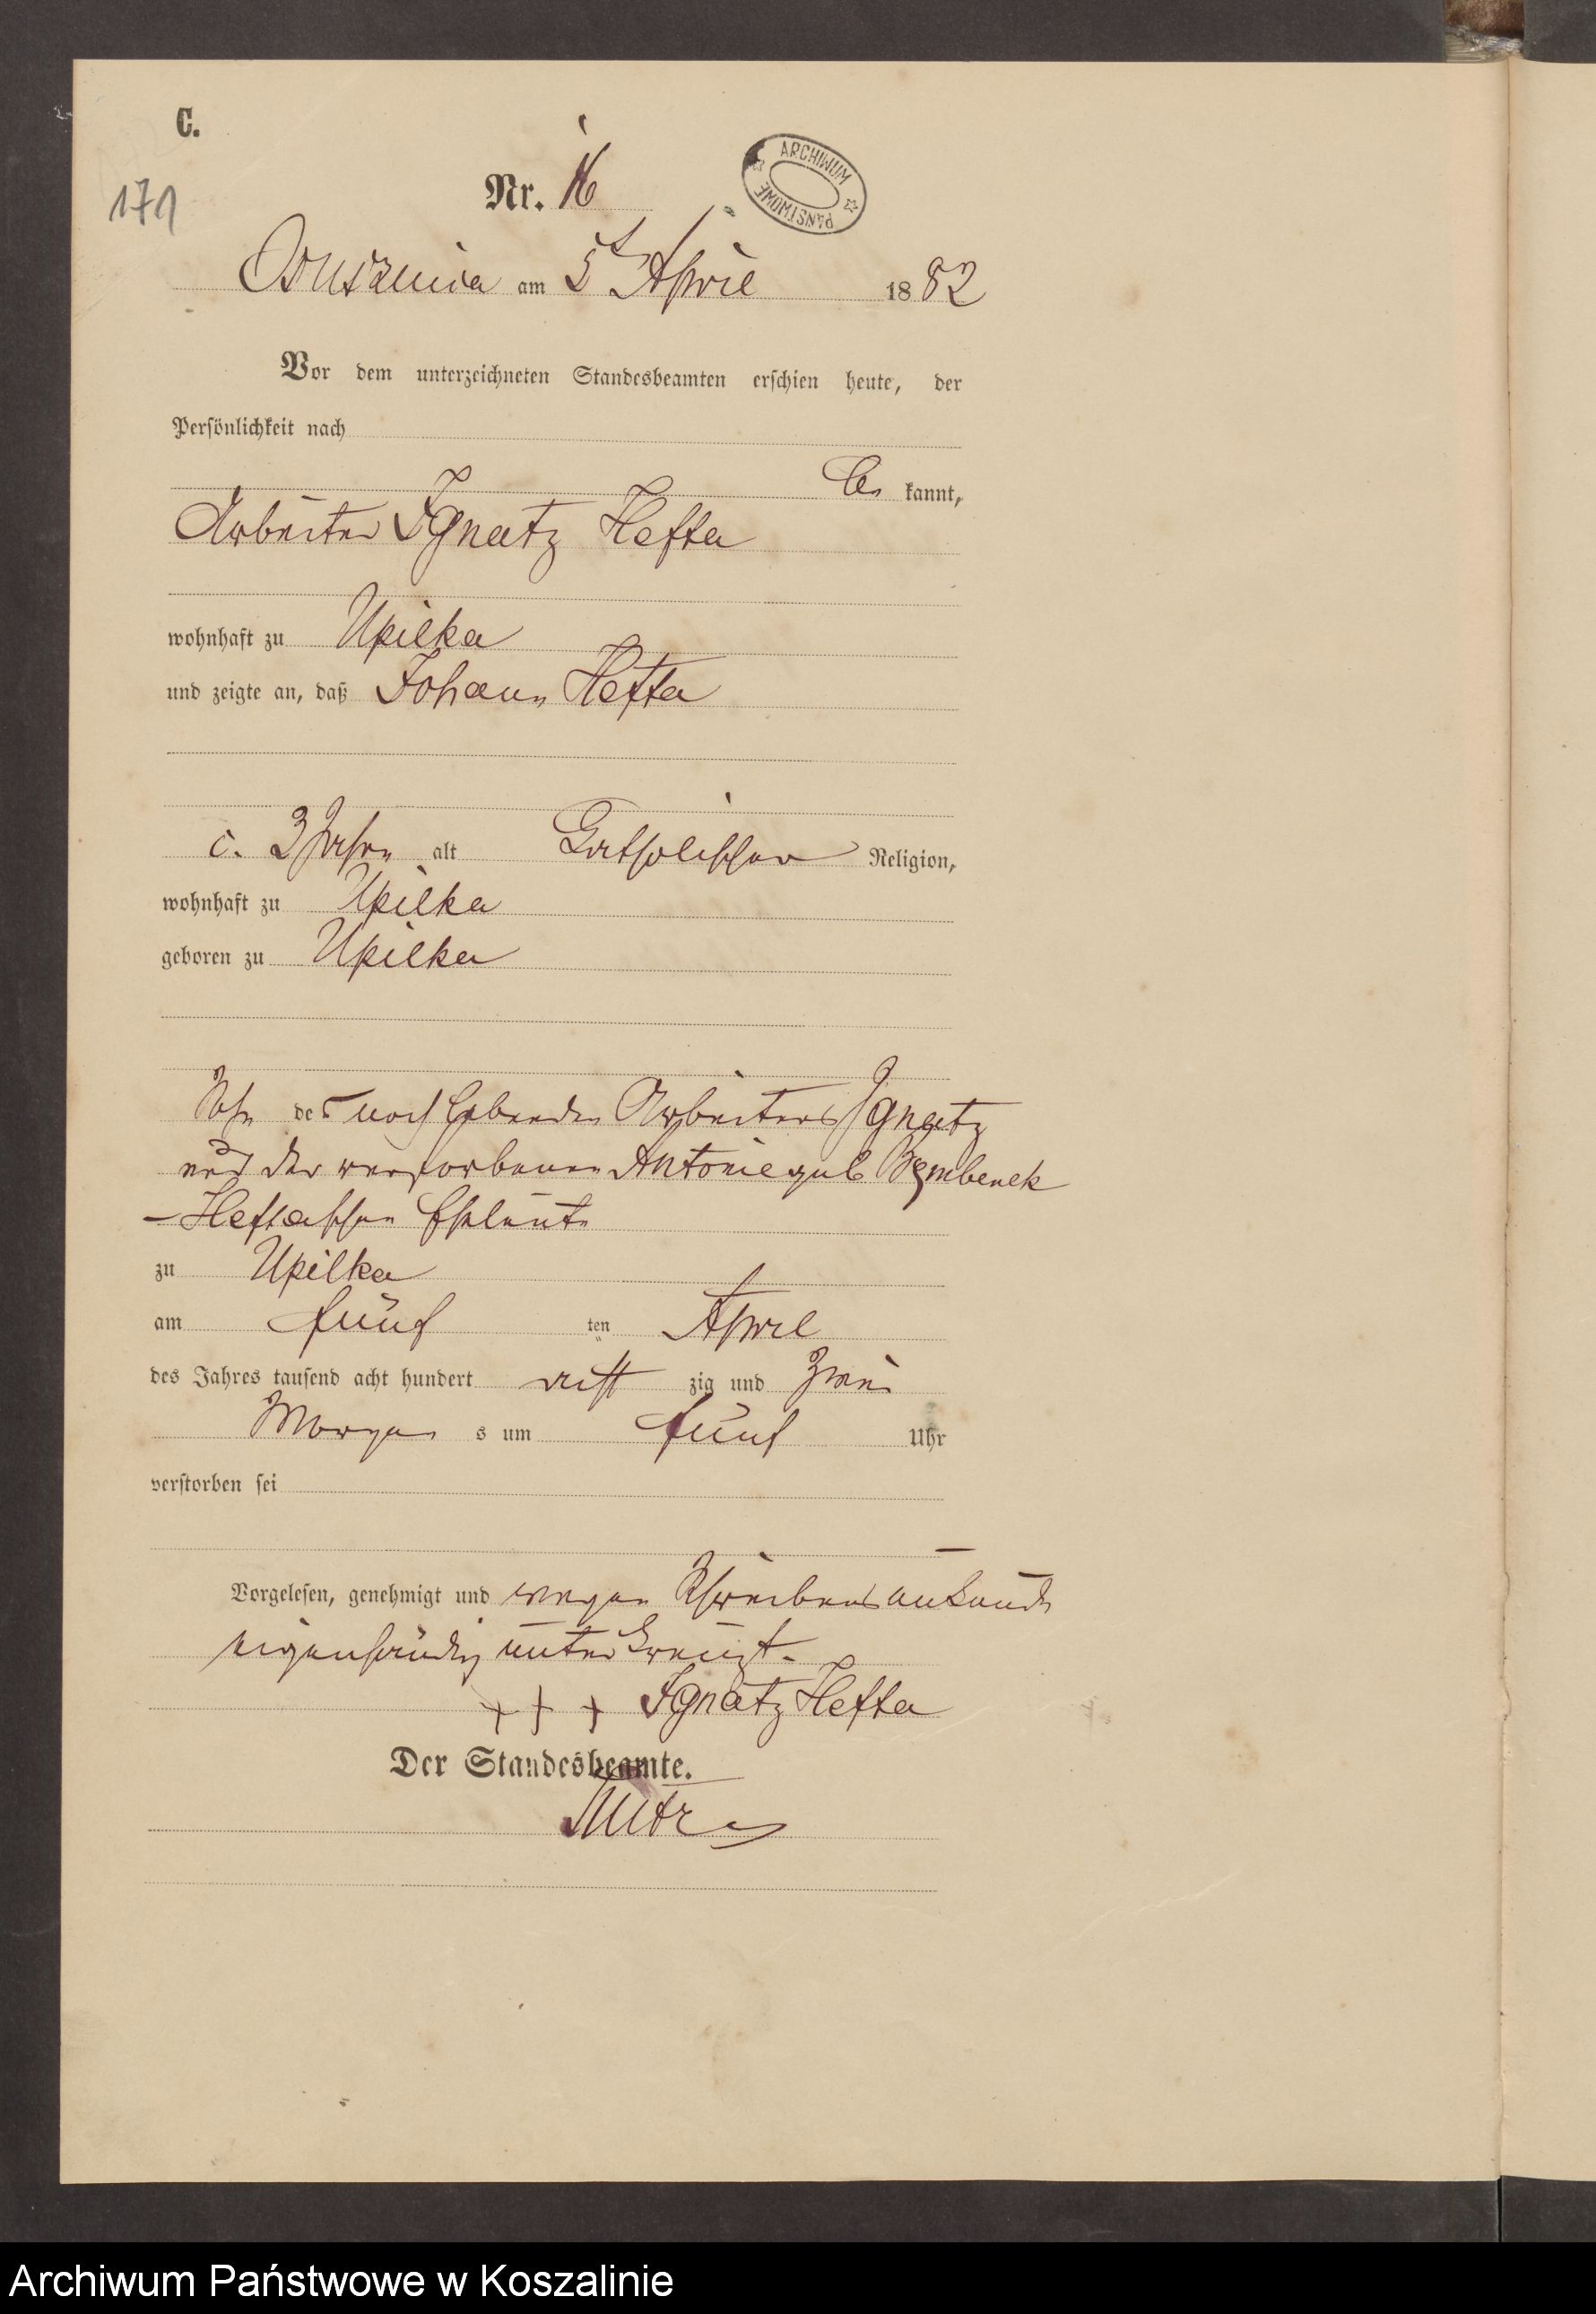 C.
171
Nr. 16
ARCHIWUM PAŃSTWOWE
Ossusznica am 5t April 1882
Vor dem unterzeichneten Standesbeamten erschien heute, der
Persönlichkeit nach
be kannt,
Arbeiter Ignatz Hefta
wohnhaft zu Upilka
und zeigte an, daß Johann Hefta
c. 3 Jahre alt Catholischer Religion,
wohnhaft zu Upilka
geboren zu Upilka
Sohn des noch lebenden Arbeiters Ignatz
und der verstorbenen Antonie geb
– Heftaschen Eheleute
zu Upilka
am fünf ten April
des Jahres tausend acht hundert acht zig und zwei
Morgen s um fünf Uhr
verstorben sei
Vorgelesen, genehmigt und wegen Schreibensunkunde
eigenhändig unterkreuzt.
+ + + Ignatz Hefta
Der Standesbeamte.
Archiwum Państwowe w Koszalinie